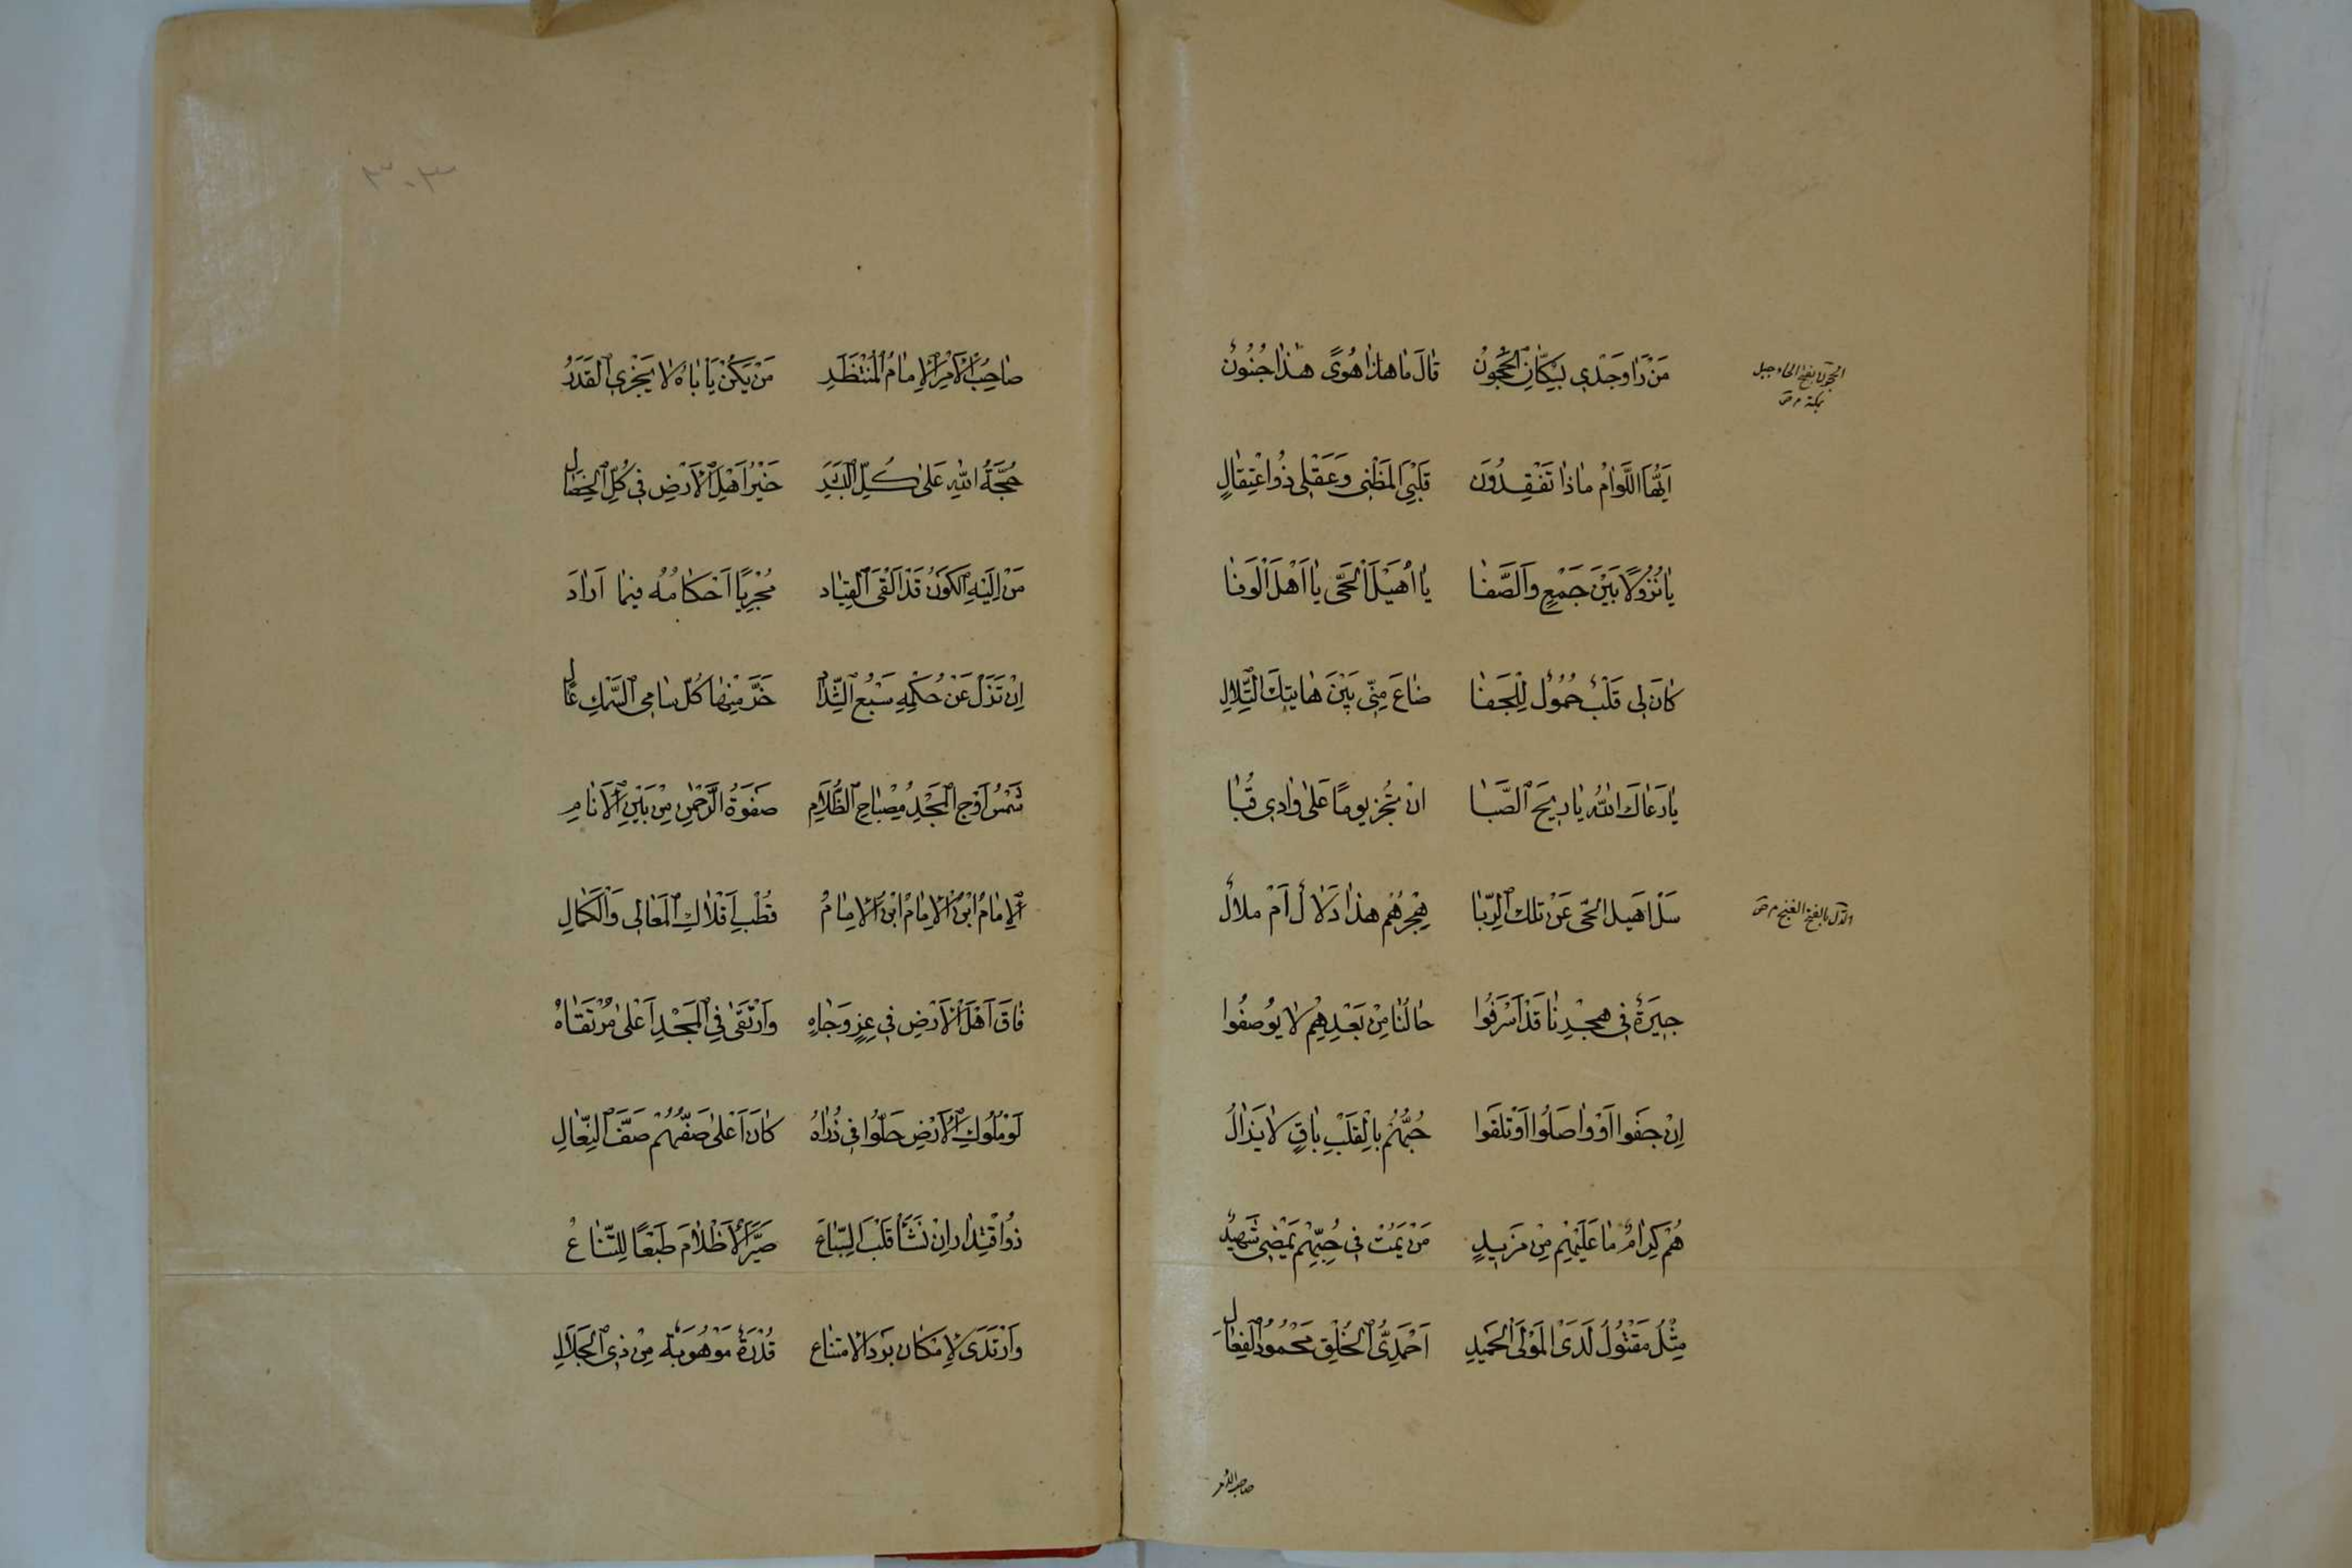 مَنْ رَاٰ وَجْدٖي بِسُكّٰانِ الْحَجُونْ قٰالَ مٰا هٰذٰا هُوىً هٰذٰا جُنُونٌ
الحجون بفتح الحاء جبل
بمكة م ص
اَيُّهَا اللَّوّٰامُ مٰاذٰا تَفْقِدُونَ قَلْبِيَ الْمُضْنٰى وَعَقْلٖي ذُو اعْتِقٰالٍ
يٰا نُزُولًا بَيْنَ جَمْعٍ وَالصَّفٰا يٰا اُهَيْلَ الْحَيِّ يٰا اَهْلَ الْوَفٰا
كٰانَ لٖي قَلْبٌ حَمُولٌ لِلْجَفٰا ضٰاعَ مِنّٖي بَيْنَ هٰاتٖيكَ التِّلٰالِ
يٰا رَعٰاكَ اللّٰهُ يٰا رٖيحَ الصَّبٰا انْ تَجُزْ يومًا عَلٰى وٰادٖي قُبٰا
سَلْ اُهَيل الحَيّ عَنْ تلكَ الرُّبٰا هِجْرُهُمْ هٰذٰا دَلٰالٌ اَمْ ملٰالٌ
الدل بالفتح الغنج م ص
جٖيرَةٌ فٖي هجْرِنٰا قَدْ اَسْرَفُوا حٰالُنٰا مِنْ بَعْدِهِمْ لٰا يُوصَفُوا
اِنْ جَفَوا اَوْ وٰاصَلُوا اَوْ تلَفوا حُبُّهُمْ بِالْقَلْبِ بٰاقٍ لٰا يَزٰالُ
هُمْ كِرٰامٌ مٰا عَلَيْهِمْ مِنْ مَزٖيدٍ مَنْ يَمُتْ فٖي حُبِّهِمْ يَمْضٖي شَهيدٌ
مِثْلُ مَقْتُولٍ لَدَى الْمَوْلَى الْحَمٖيدِ اَحْمَدِيُّ الْخُلْقِ مَحْمُودُ الْفِعٰالِ
صاحب الامر
٣٠٣
صٰاحِبُ الْاَمْرِ الْاِمٰامُ الْمُنْتَظَرِ مَنْ يَكُنْ يَأْبٰاهُ لٰا يَجْرِي الْقَدَرُ
حُجَّةُ اللّٰهِ عَلٰى كُلِّ الْبَشَرِ خَيْرُ اَهْلِ الْاَرْضِ فٖي كُلِّ الْخِصٰالِ
مَنْ اِلَيْهِ الْكَوْنُ قَدْ اَلْقَى الْقِيٰاد مُجْرِيًا اَحْكٰامُهُ فيمٰا اَرٰادَ
اِنْ تَزُلْ عَنْ حُكْمِهِ سَبْعُ الشِّدٰاد خَرَّ مِنْهٰا كُلّ سٰامِي السَّمْكِ عٰال
شَمْسُ اَوْجِ الْمَجْدِ مِصْبٰاحِ الظَّلٰامِ صَفْوَةُ الرَّحْمٰنِ مِنْ بَيْنِ الْاَنٰامِ
الْاِمٰامُ ابْنُ الْاِمٰامُ ابْنُ الْاِمٰامُ قُطْبِ اَفْلٰاكِ الْمَعٰالٖي وَالْكَمٰالِ
فٰاقَ اَهْلَ الْاَرْضِ فٖي عِزٍ وَجٰاهِ وَارْتَقٰى فِي الْمَجْدِ اَعْلٰى مُرْتَقٰاهُ
لَوْ مُلُوكِ الْاَرْضِ حَلُّوا فٖي ذُرٰاهُ كٰانَ اَعْلٰى صَفِّهِم صَفَّ النِّعٰالِ
ذُو اقْتِدٰار اِنْ يَشَأْ قَلْبَ الطِّبٰاعَ صَيَّرَ الْاَظْلٰامَ طَبْعًا لِلشُّعٰاعْ
وَارْتَدَى لِاِمْكٰان بَرد الامتنٰاع قُدْرَةٌ مَوْهُوبَةٌ مِنْ ذِي الْجَلٰالِ